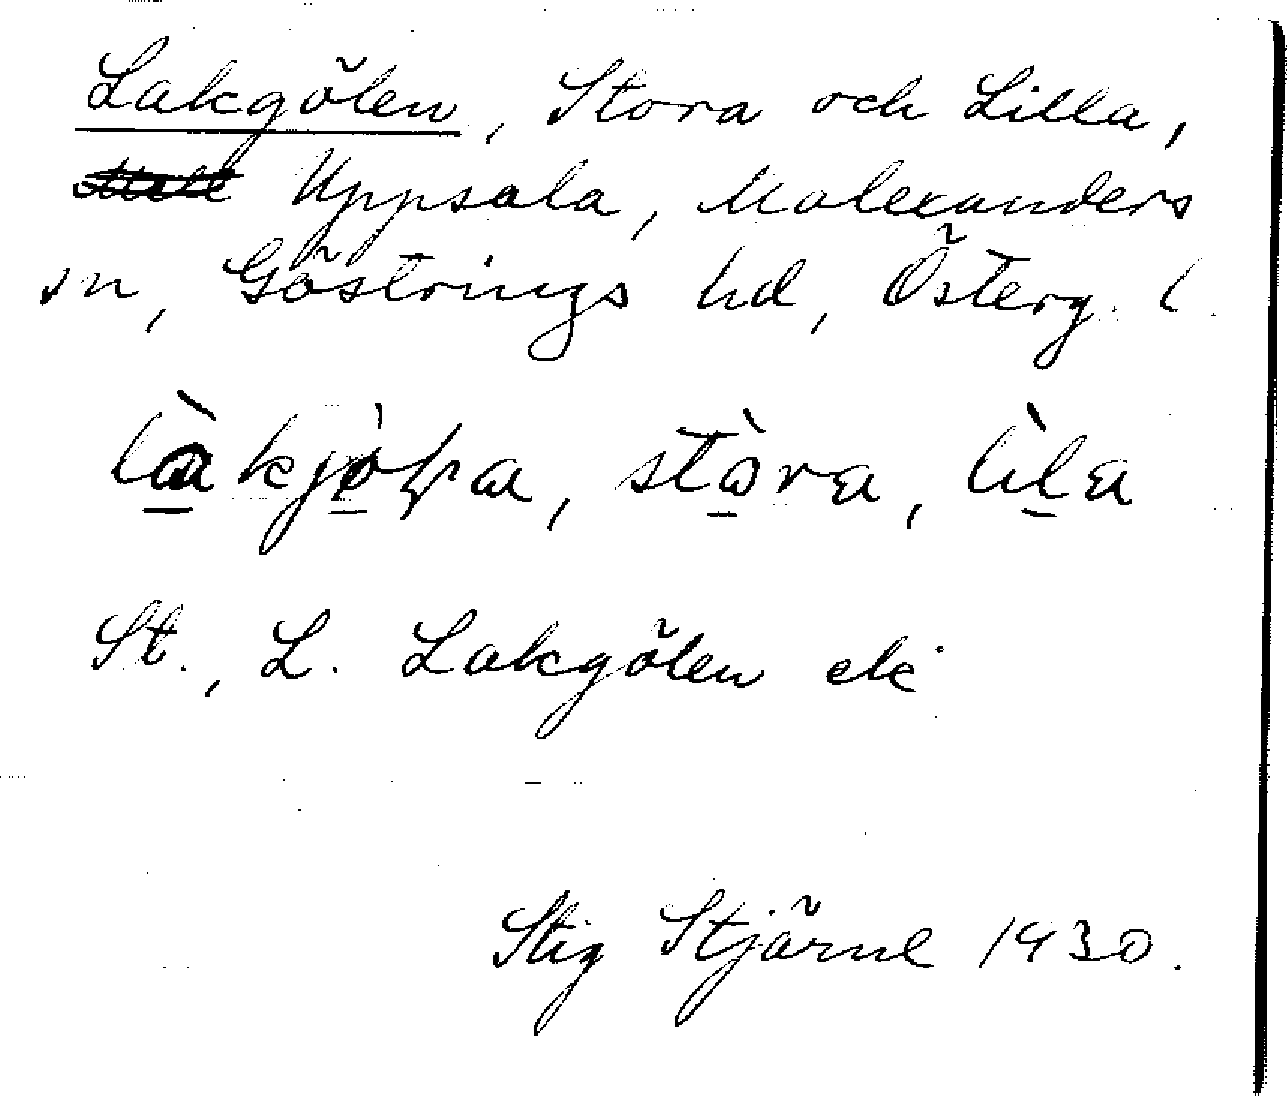 Lakgölen, Stora och Lilla,
Uppsala, Malexanders
sn, Göstrings hd, Österg. l.
stò̱ra, lì̱la
St., L. Lakgölen ek
Stig Stjärne 1930.